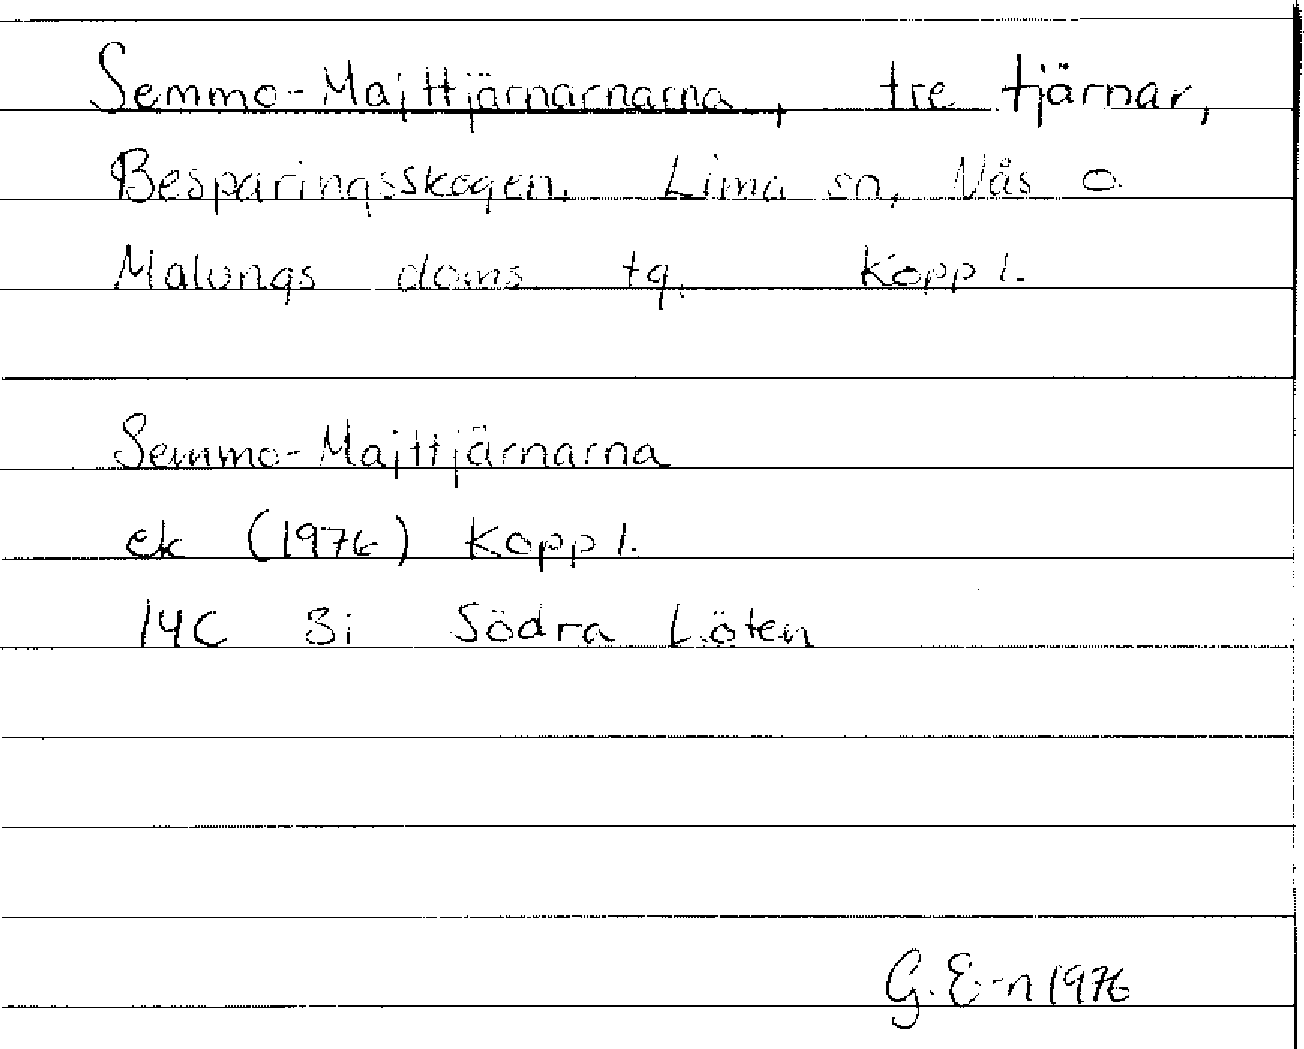 Semmo-Majttjärnarnarna, tre tjärnar,
Besparingsskogen, Lima sn, Nås o.
Malungs doms tg. Koppl.
Semmo-Majttjärnarna
ek (1976) Koppl.
14C 3i Södra Löten
G. E-n 1976